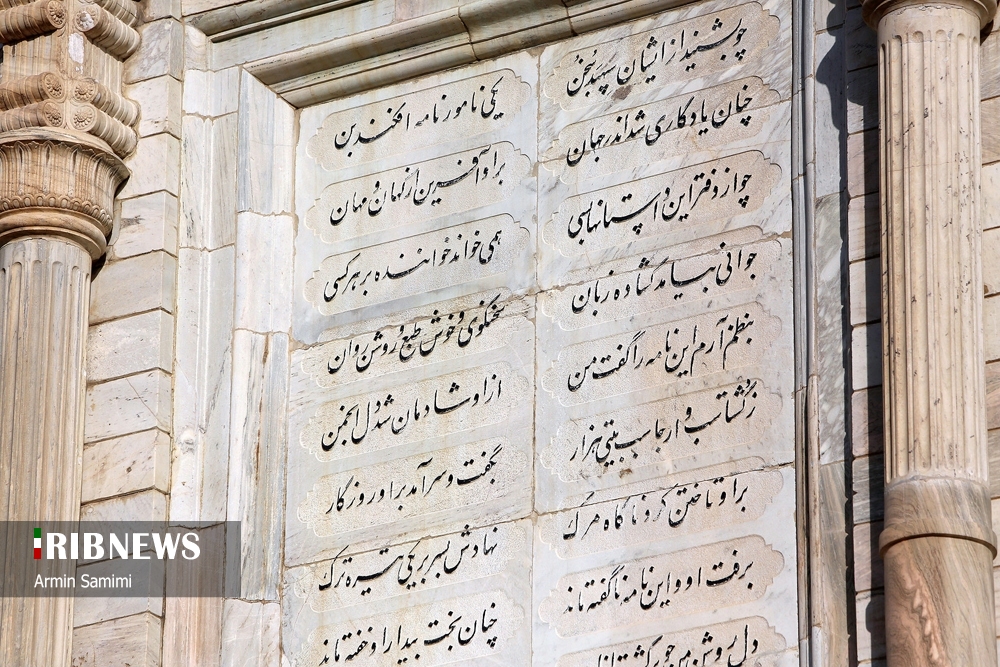 چو بشنید از ایشان سپهبد سخن
یکی نامور نامه افکند بن
چنان یادگاری شد اندر جهان
بر او آفرین از کهان و مهان
چو از دفتر این داستانها بسی
همی خواند خواننده بر هر کسی
جوانی بیامد گشاده زبان
سخنگوی و خوش طبع و روشن روان
بنظم آرم این نامه را گفت من
از او شادمان شد دل انجمن
ز گشتاسب و ارجاسب بیتی هزار
بگفت و سرآمد بر او روزگار
بر او تاختن کرد ناگاه مرگ
نهادش بسر بر یکی تیره ترگ
برفت او و این نامه ناگفته ماند
چنان بخت بیدار او خفته ماند
دل روشن من چو برگشت از
IRIBNEWS
Armin Samimi